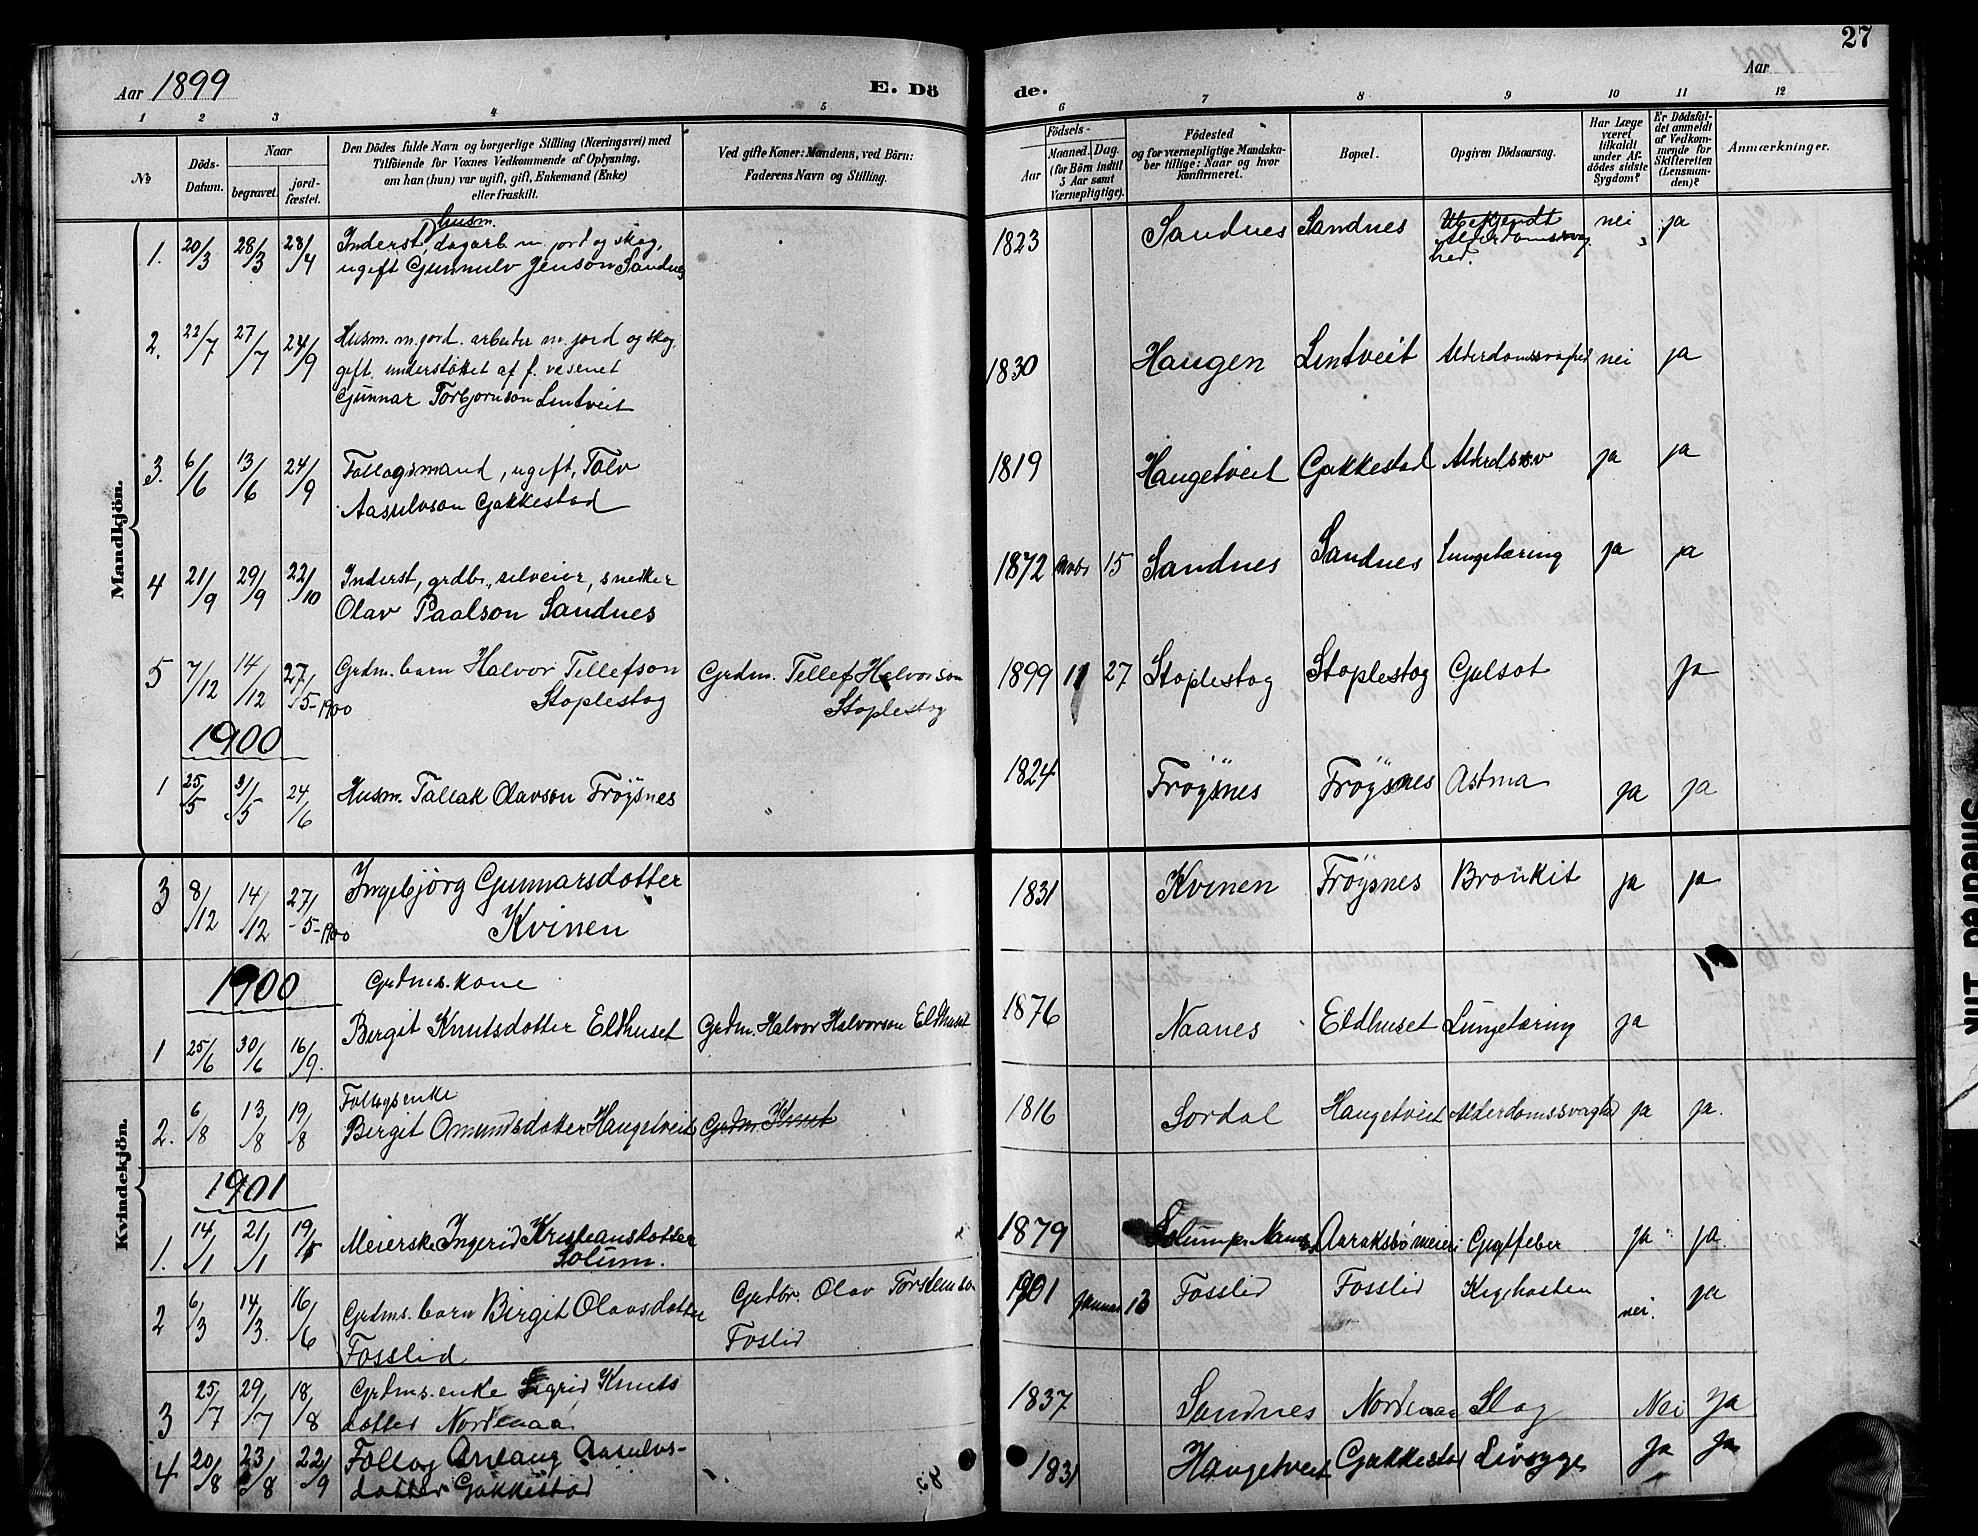 27
Aar 1899
E. Dö
de.
Aar
1 2 3 4 5 6 7 8 9 10 11 12
No
Döds-Datum.
Naar
begravet.
jord-fæstet.
Den Dödes fulde Navn og borgerlige Stilling (Næringsvei) med
Tilföiende for Voxnes Vedkommende af Oplysning,
om han (hun) var ugift, gift, Enkemand (Enke)
eller fraskilt.
Ved gifte Koner: Mandens, ved Börn:
Faderens Navn og Stilling.
Födsels-
Aar
Maaned. Dag.
(for Börn indtil
5 Aar samt
Værnepligtige).
Födested
og for værnepligtige Mandska-
ber tillige: Naar og hvor
konfirmeret.
Bopæl.
Opgiven Dödsaarsag.
Har Læge
været
tilkaldt
under Af-
dödes sidste
Sygdom?
Er Dödsfal-
det anmeldt
af Vedkom-
mende for
Skifteretten
(Lensman-
den)?
Anmærkninger.
Mandkjön.
husm.
1. 20/3 28/3 23/4 Inderst, dagarb m jord og skog, 1823 Sandnes Sandnes Ubekjendt nei ja
ugift Gunnulv Jenson Sandnes Alderdomssvag
hed.
2. 22/7 27/7 24/9 Husm. m. jord. arbeider m. jord og skog. 1830 Haugen Lintveit Alderdomssvaghed nei ja
gift. understöttet af f. væsenet
Gunnar Torbjornson Lintveit
3. 6/6 13/6 24/9 Follogsmand, ugift, Talv 1819 Haugetveit Gakkestad Alderdsv ja ja
Aasulvson Gakkestad
4 21/9 29/9 22/10 Inderst, grdbr., selveier, snedker 1872 15 Sandnes Sandnes Lungetæring ja ja
Olav Paalson Sandnes
5 7/12 14/12 27/5-1900 Grdm. barn Halvor Tellefson Grdm. Tellef Halvorson 1899 11 27 Stoplestog Stoplestog Gulsot ja
Stoplestog Stoplestog
1900
1 25/5 31/5 24/6 Husm. Tallak Olavson Fröysnes 1824 Fröysnes Fröysnes Astma ja ja
Kvindekjön.
3 8/12 14/12 27/5-1900 Ingebjörg Gunnarsdotter 1831 Kvinen Fröysnes Bronkit ja ja
Kvinen
1900 Grdms. kone
1 25/6 30/6 16/9. Bergit Knutsdotter Eldhuset Grdm. Halvor Halvorson Eldhuset 1876 Naanes Eldhuset Lungetæring ja
Follogsenke
2. 6/8 13/8 19/8 Birgit Omundsdotter Haugetveit Grdm. Knut 1816 Sordal Haugetveit Alderdomssvaghed ja ja.
1901
1. 14/1 21/1 19/5 Meierske Ingerid Kristiansdotter 1879 Aaraksbö meieri Gigtfeber ja ja.
Solum.
2 6/3 14/3. 16/6 Grdms. barn Birgit Olavsdotter Grdbr. Olav Torsteinson 1901 januar 13 Fosslid Fosslid Kighosten nei. ja
Fosslid Foslid
3 25/7 29/7 18/8 Grdms. enke Sigrid Knuts 1837 Sandnes Nordenaa Slag Nei Ja
dotter Nordenaa
4 20/8 23/8 22/9 Follog Aasulvs- 1831 Haugetveit Gakkestad Livsyge Ja Ja
dotter Gakkestad